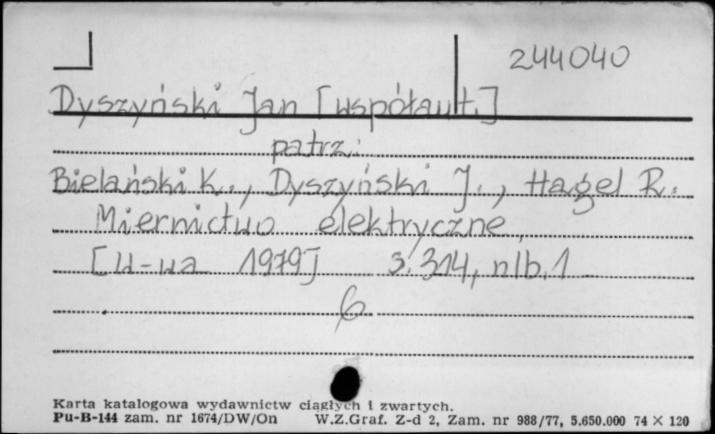 244040
Dyszyński Jan [współaut.]
patrz:
Bielański K., Dyszyński J., Hagel R.
Miernictwo elektryczne,
[W-wa 1979] s. 314, nlb. 1
6
Karta katalogowa wydawnictw ciągłych i zwartych.
Pu-B-144 zam. nr 1674/DW/On W.Z.Graf. Z-d 2, Zam. nr 988/77, 5.650.000 74 X 120